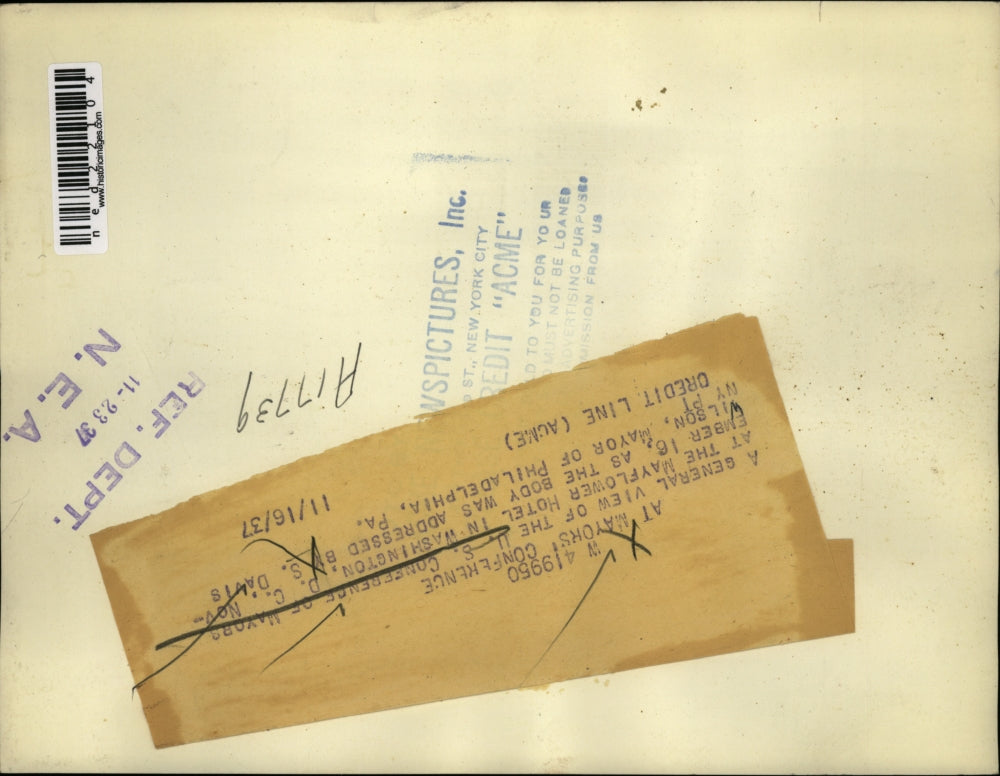 W 419950
AT MAYORS' CONFERENCE
A GENERAL VIEW OF THE U. S. CONFERENCE OF MAYORS
AT THE MAYFLOWER HOTEL IN WASHINGTON, D. C. NOV-
EMBER 16, AS THE BODY WAS ADDRESSED BY S. DAVIS
WILSON, MAYOR OF PHILADELPHIA, PA.
NY PT
CREDIT LINE (ACME) 11/16/37
WSPICTURES, Inc.
ST., NEW YORK CITY
REDIT "ACME"
D TO YOU FOR YOUR
MUST NOT BE LOANED
DVERTISING PURPOSES
MISSION FROM US
A17739
REF. DEPT.
11-23 37
N. E. A.
www.historicimages.com